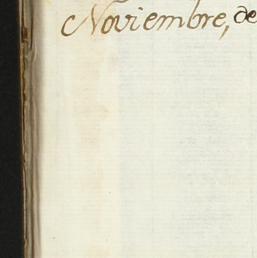 Noviembre, de